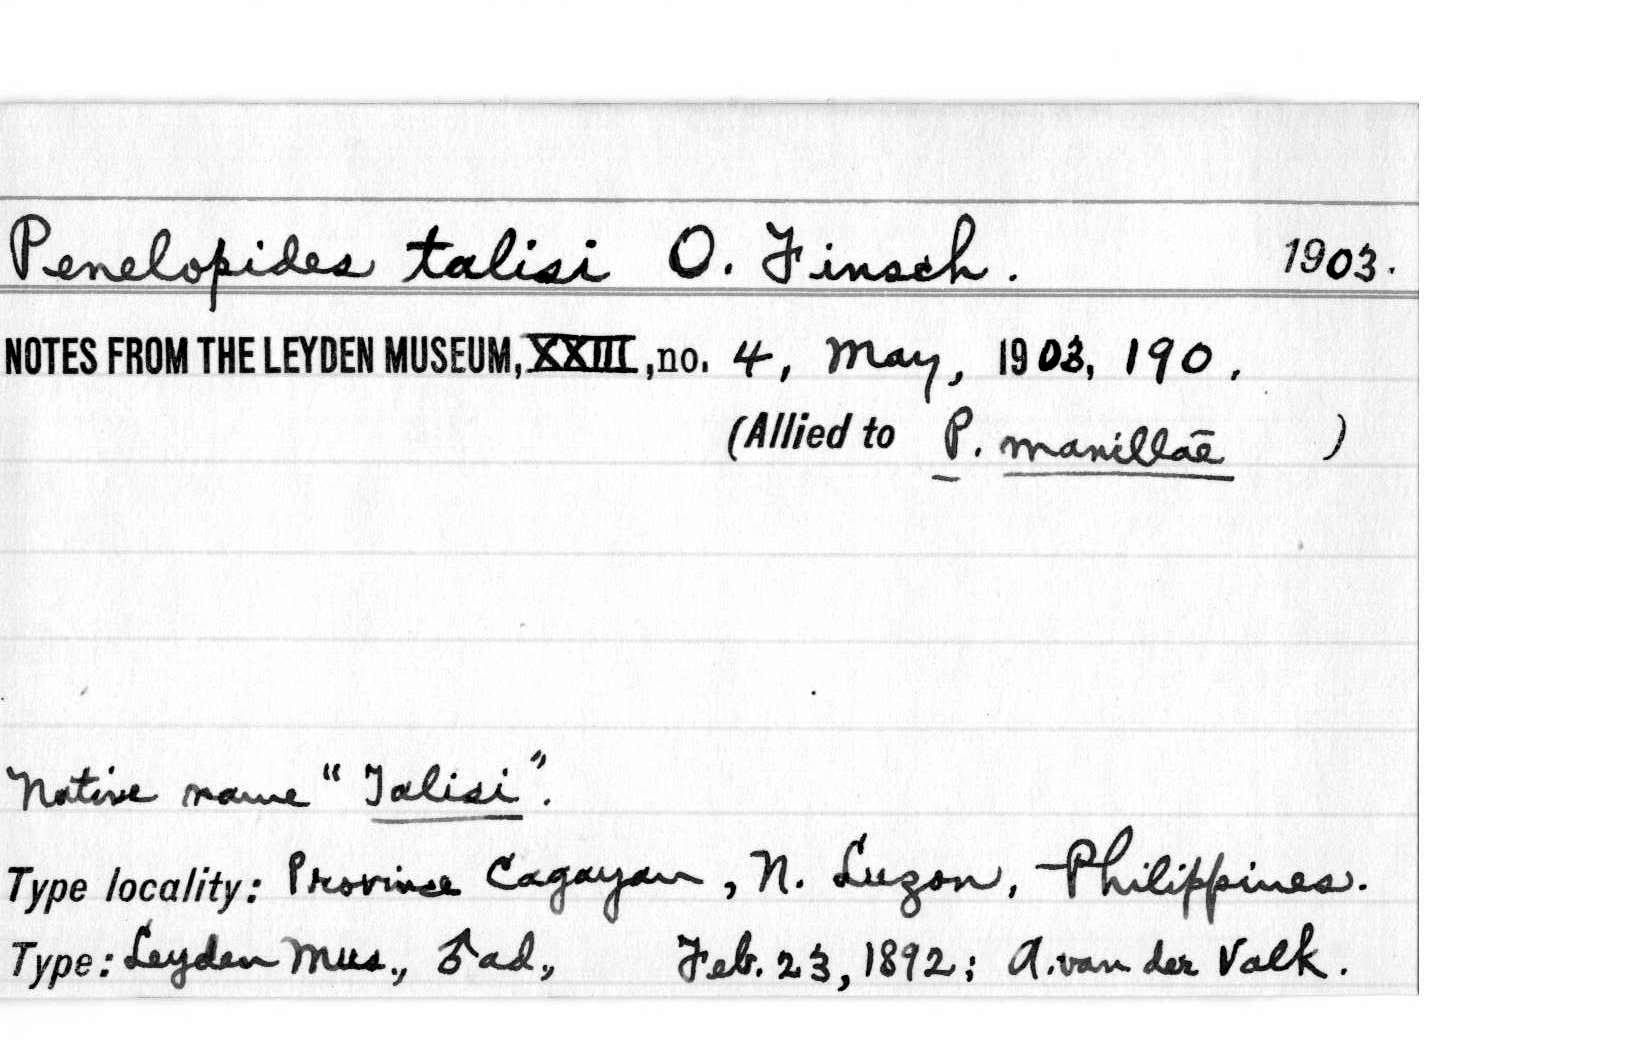 Penelopides talisi O. Finsch. 1903.
NOTES FROM THE LEYDEN MUSEUM, XXIII, no. 4, May, 1903, 190.
(Allied to P. manillae )
Native name "Talisi".
Type locality: Province Cagayan, N. Luzon, Philippines.
Type: Leyden Mus., ♂ ad., Feb. 23, 1892; A. van der Valk.